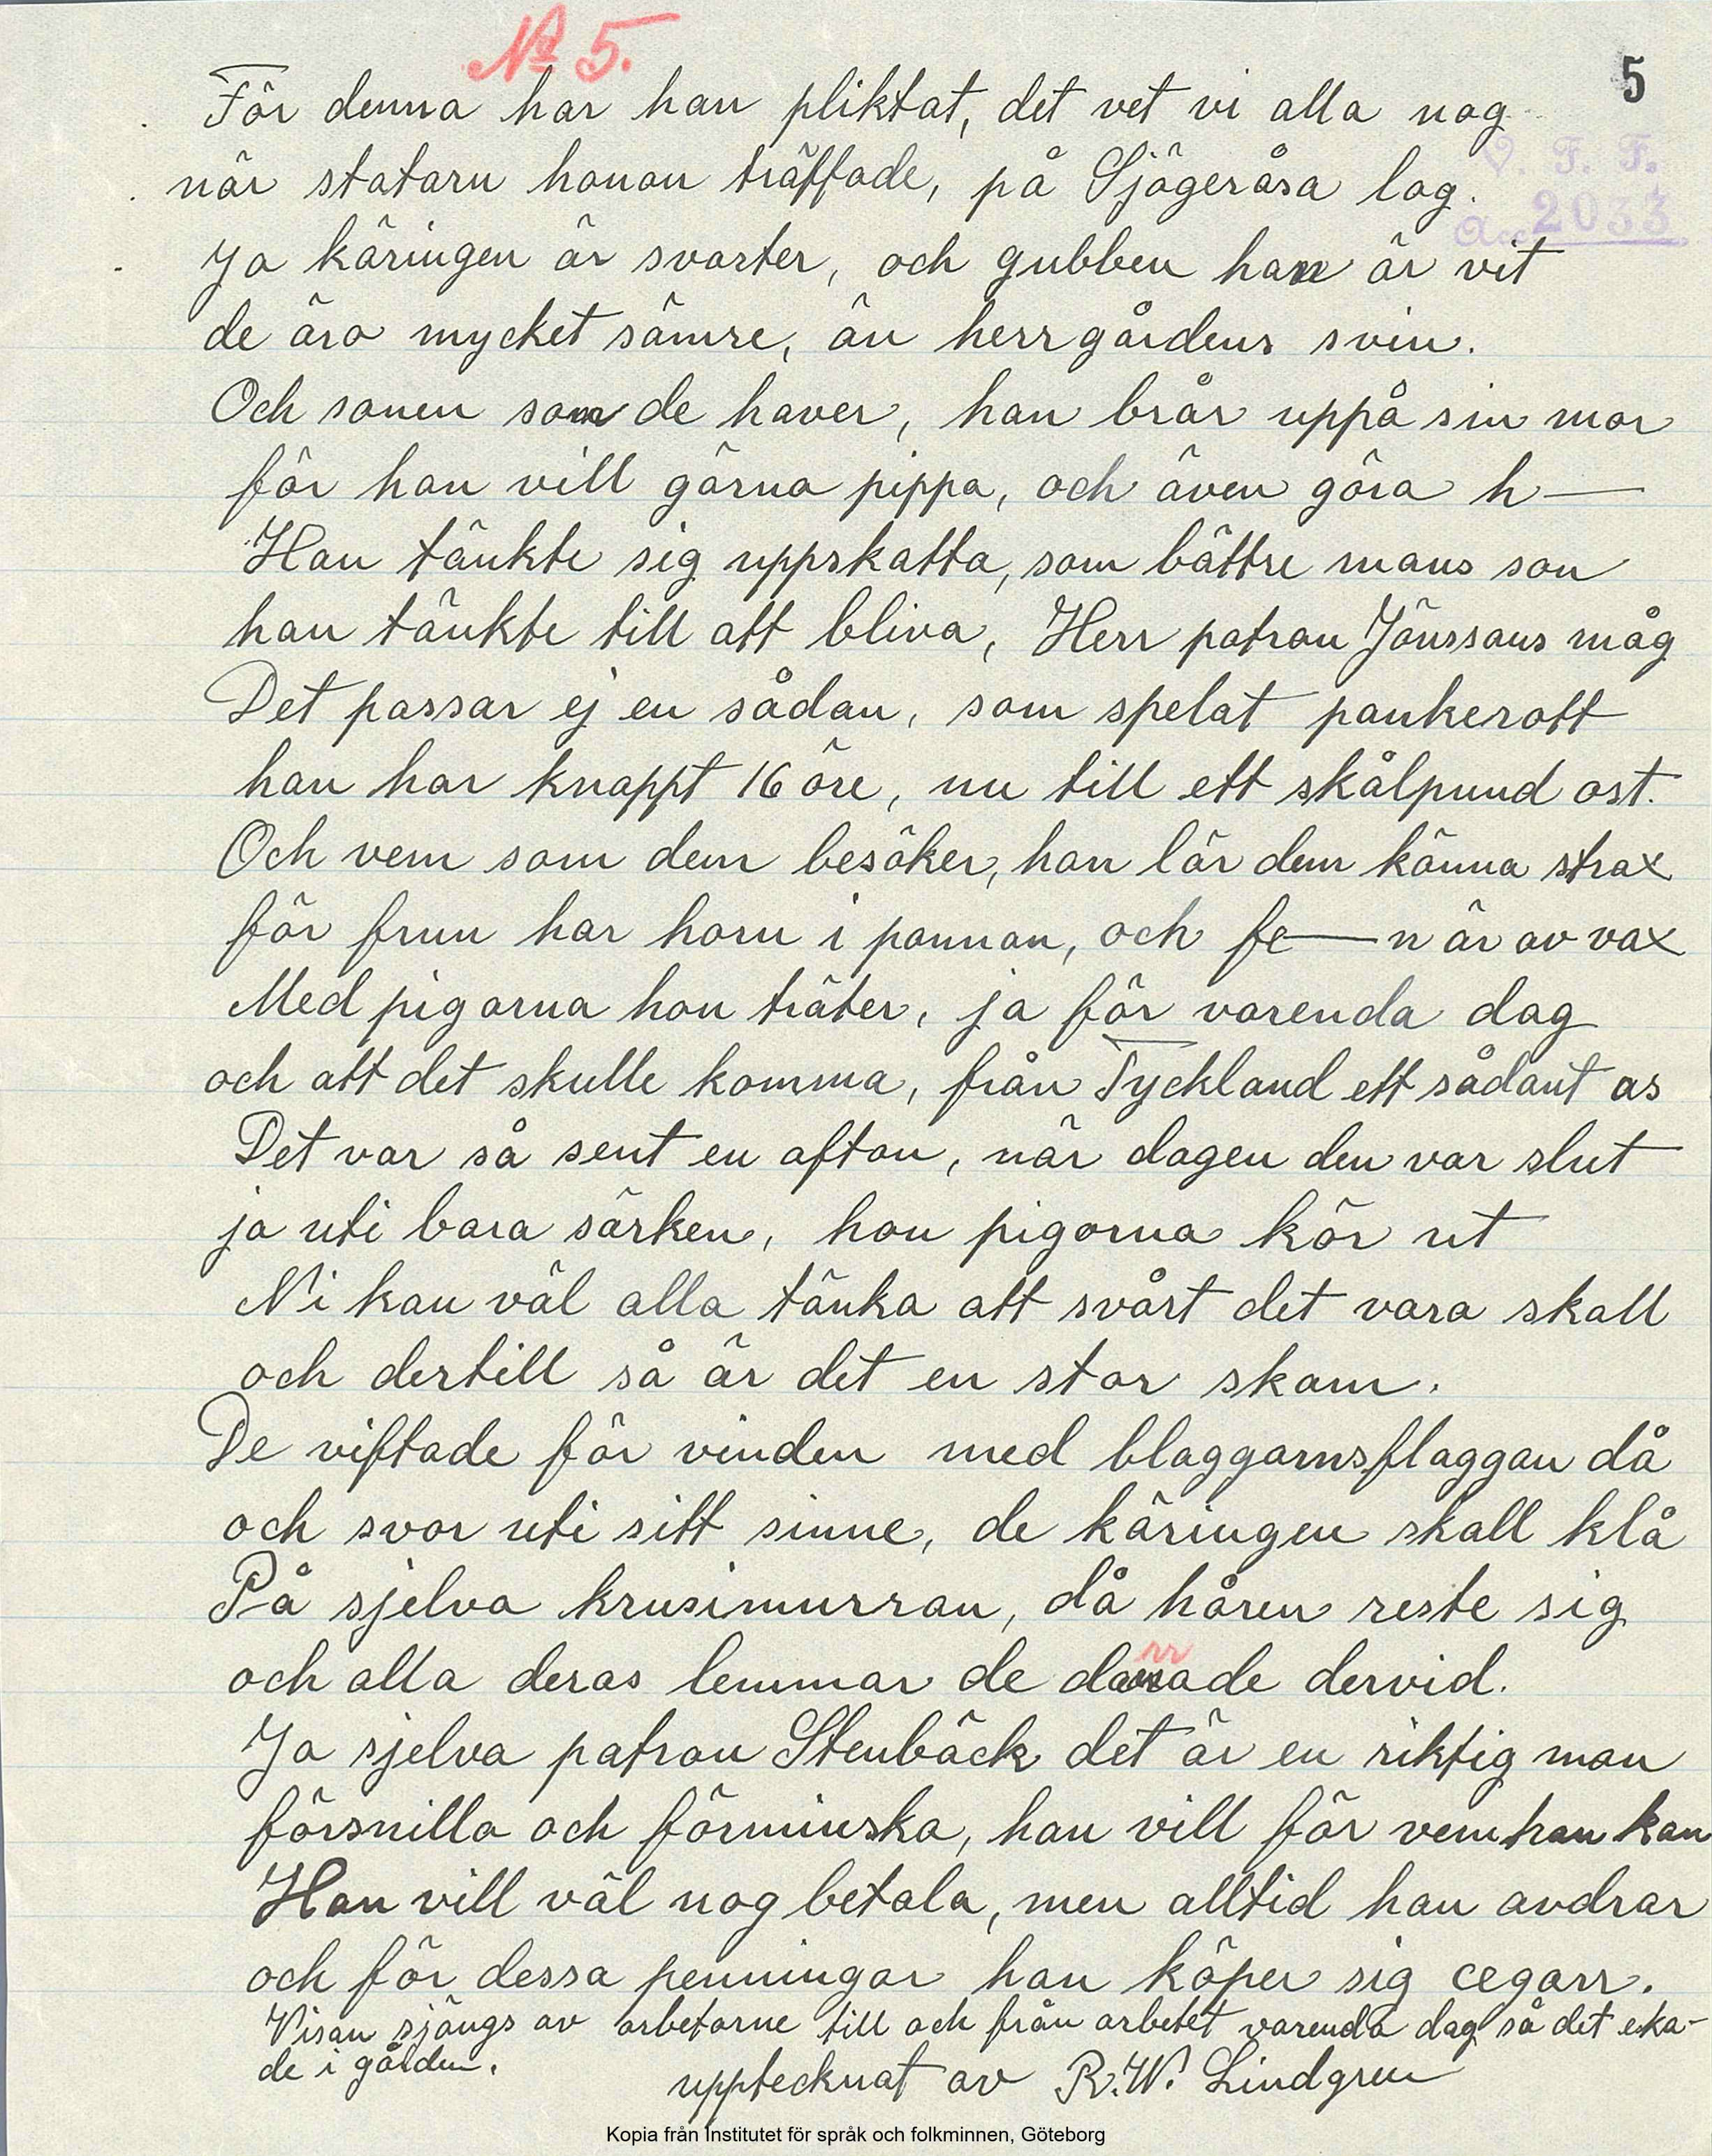 № 5.
5
För denna har han pliktat, det vet vi alla nog
V. F. F.
när statarn honon träffade, på Sjögeråsa log.
Acc 2033
Ja käringen är svarter, och gubben han är vit
de äro mycket sämre, än herrgårdens svin.
Och sonen som de haver, han brår uppå sin mor
för han vill gärna pippa, och även göra h—
Han tänkte sig uppskatta, som bättre mans son
han tänkte till att bliva, Herr patron Jönssons måg
Det passar ej en sådan, som spelat pankerott
han har knappt 16 öre, nu till ett skålpund ost.
Och vem som dem besöker, han lär dem känna strax
för frun har horn i pannan, och fe—n är av vax
Med pigorna hon träter, ja för varenda dag
och att det skulle komma, från Tyckland ett sådant as
Det var så sent en afton, när dagen den var slut
ja uti bara särken, hon pigorna kör ut
Ni kan väl alla tänka att svårt det vara skall
och dertill så är det en stor skam.
De viftade för vinden med blaggarnsflaggan då
och svor uti sitt sinne, de käringen skall klå
På sjelva krusimurran, då håren reste sig
rr
och alla deras lemmar de darrade dervid.
Ja sjelva patron Stenbäck det är en riktig man
försnilla och förminska, han vill för vem han kan
Han vill väl nog betala, men alltid han avdrar
och för dessa penningar han köper sig cegarr.
Visan sjöngs av arbetarne till och från arbetet varenda dag så det eka-
de i gården.
upptecknat av R.W. Lindgren
Kopia från Institutet för språk och folkminnen, Göteborg